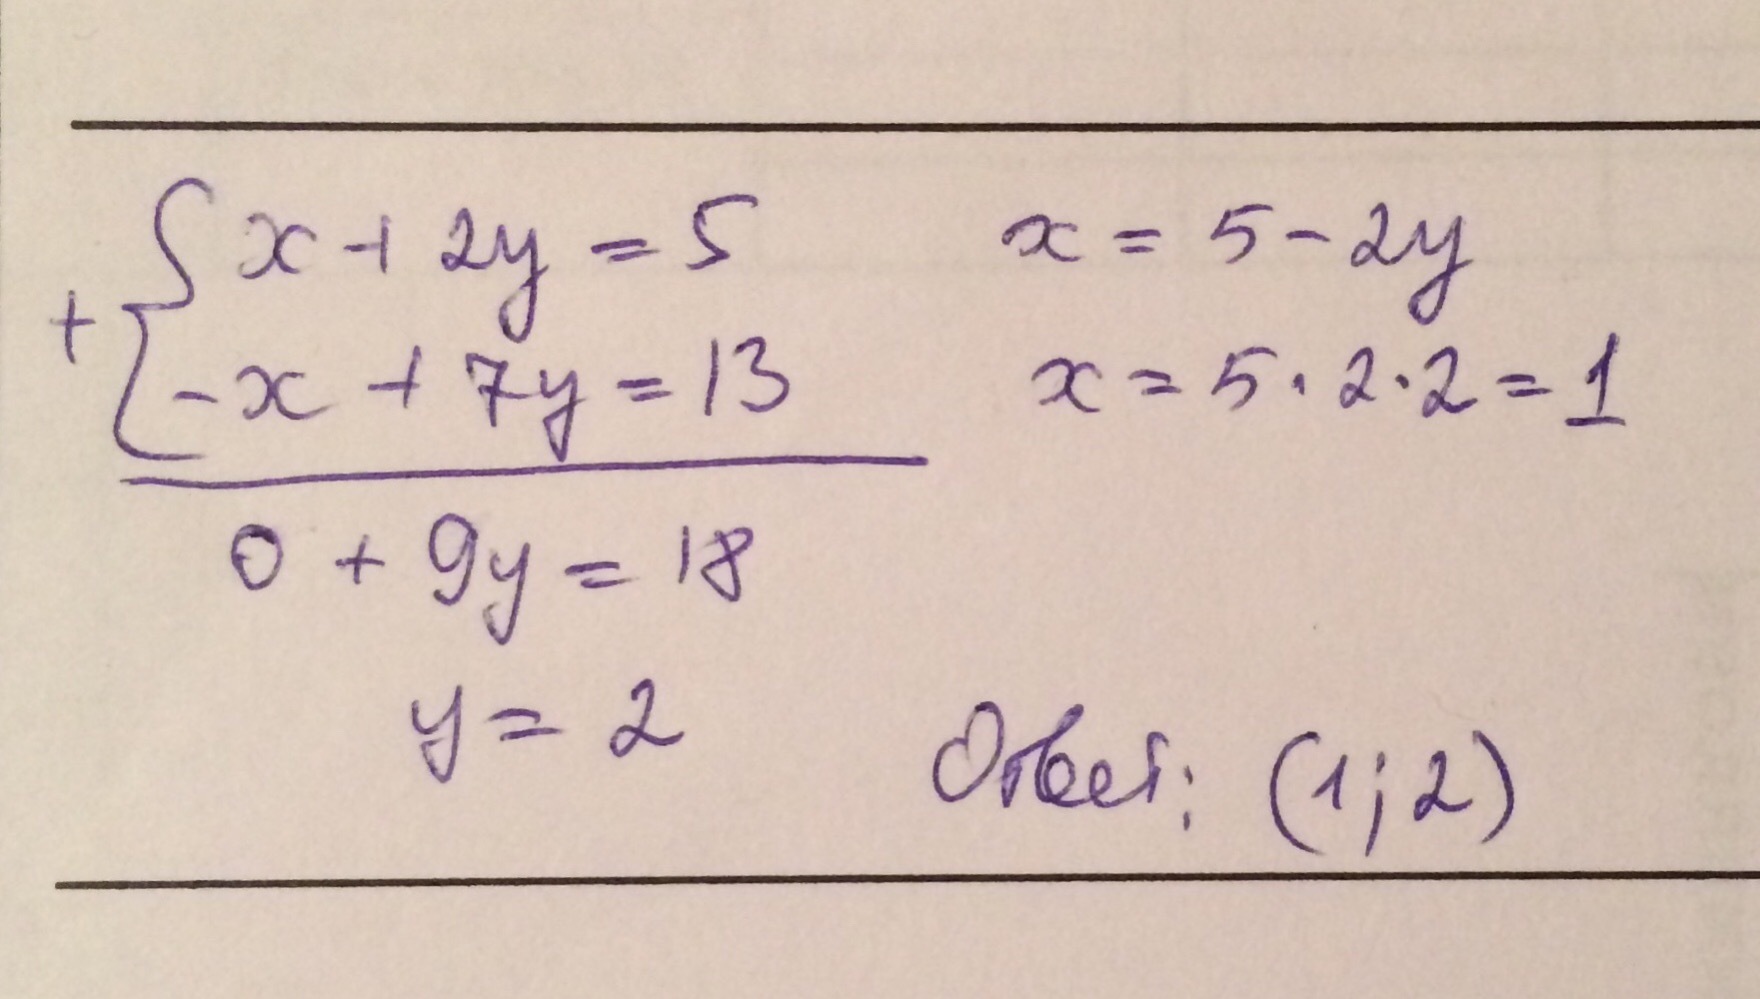 + { x + 2y = 5
-x + 7y = 13
0 + 9y = 18
y = 2
x = 5 - 2y
x = 5 · 2 · 2 = 1
Ответ: (1; 2)